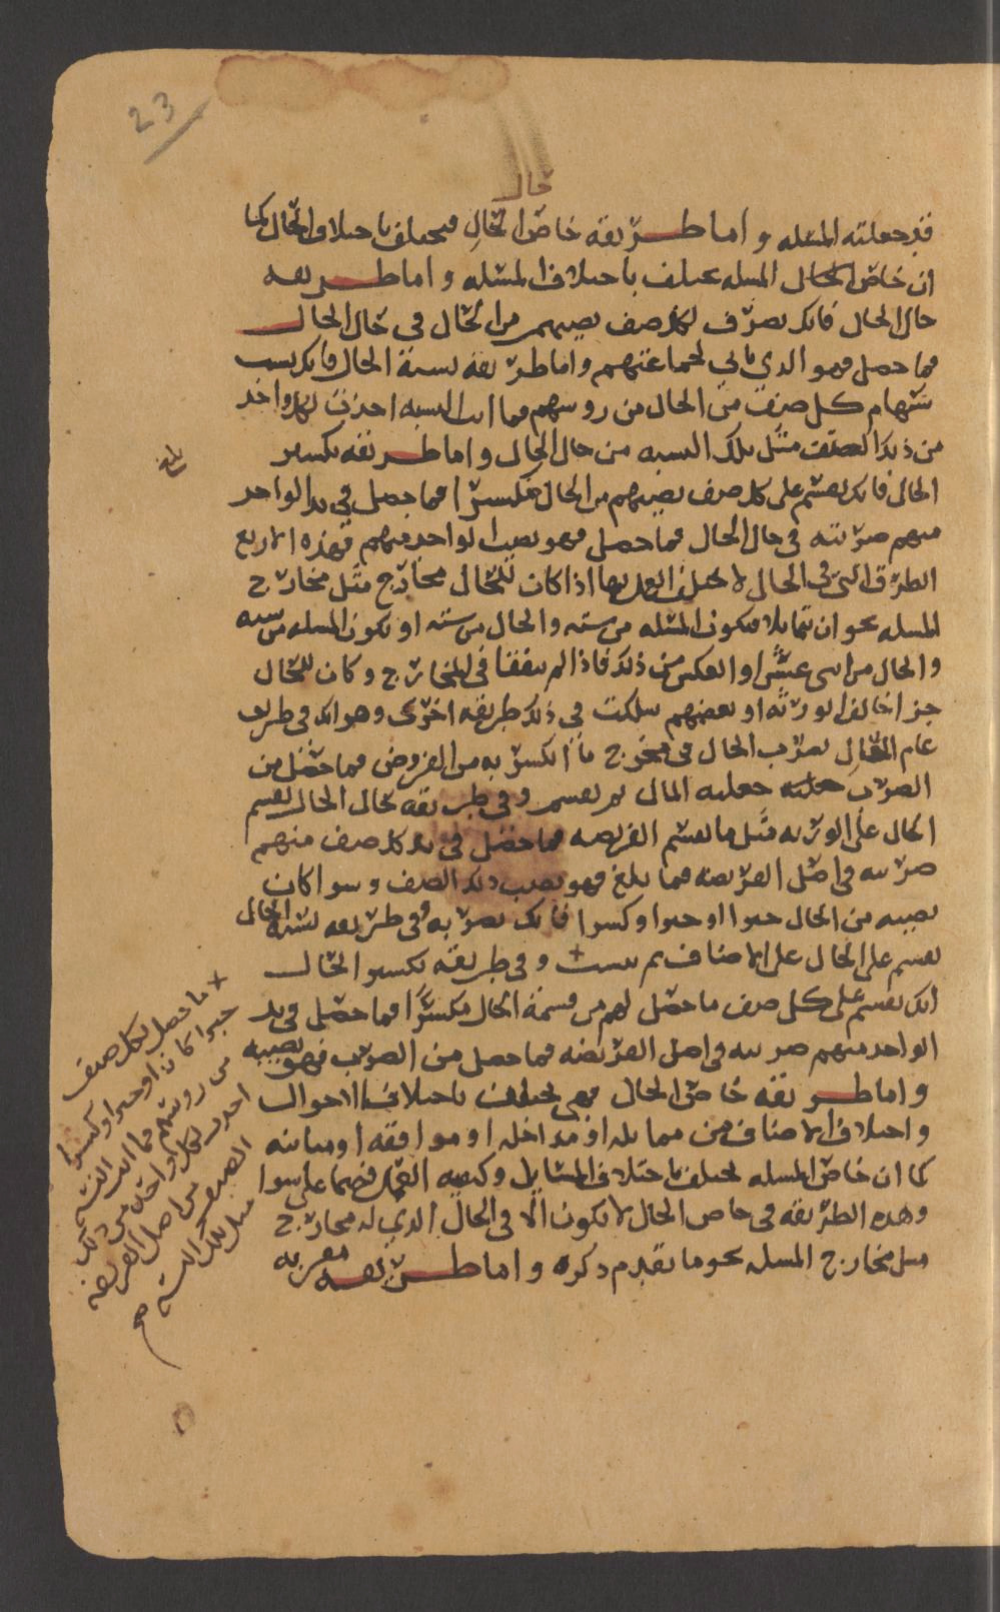 23
حال
قد جعلته المسئله واما طريقه خاص الحال فيحتلف باحتلاف الحال كما
ان خاص الحال المسله يحتلف باحتلاف المسئله واما طريقه
حال الحال فانك تضرب لكل صنف نصيبهم من الحال في حال الحال
فما حصل فهو الدي لجماعتهم واما طريقه نسبة الحال فانك تنسب
سهام كل صنف من الحال من روسهم فما اتت النسبه احدت لكل واحد
من ذلك الصنف مثل تلك النسبه من حال الحال واما طريقه تكسير
الحال فانك تقسم على كل صنف نصيبهم من الحال مكسرا فما حصل في يد الواحد
منهم ضربته في حال الحال فما حصل فهو نصيب الواحد منهم فهذه الاربع
الطرق التي في الحال لا يختلف العمل بها اذا كان للحال مخارج مثل مخارج
المسله نحو ان تماثلا فتكون المسئله من سته والحال من سته او تكون المسله من سته
والحال من اثنى عشر او العكس من ذلك فاذا لم يتفقا في المخارج وكان للحال
جزا خالف الورثه او بعضهم سلكت في ذلك طريقه اخرى وهو انك في طريق
عام الحال تضرب الحال في مخرج ما انكسر به من الفروض فما حصل من
الضرب جعلته المال ثم تقسم وفي طريقه حال الحال تقسم
الحال على الورثه مثل ما تقسم الفريضه فما حصل في يد كل صنف منهم
ضربته في اصل الفريضه فما بلغ فهو نصيب ذلك الصنف وسوا كان
نصيبه من الحال جبرا او جبرا وكسرا فانك تضربه وفي طريقه نسبة الحال
تقسم على الحال على الاصناف ثم تنسب + وفي طريقه تكسير الحال
انك تقسم على كل صنف ما حصل لهم من قسمة الحال مكسرا فما حصل في يد
الواحد منهم ضربته في اصل الفريضه فما حصل من الضرب فهو نصيبه
واما طريقه خاص الحال فهي تختلف باختلاف الاحوال
واختلاف الاصناف من مماثله او مداخله او موافقه او مباينه
كما ان خاص المسله يختلف باختلاف المسايل وكيفيه العمل فيهما على سوا
وهده الطريقه في خاص الحال لا تكون الا في الحال الدي له مخارج
مثل مخارج المسله نحو ما تقدم دكره واما طريقه معربه
بلغ
+ ما حصل لكل صنف
جبرا كان او جبرا وكسرا
من روسهم فما اتت النسبه
احدت لكل واحد من ذلك
الصنف من اصل الفريضه
مثل تلك النسبه صح